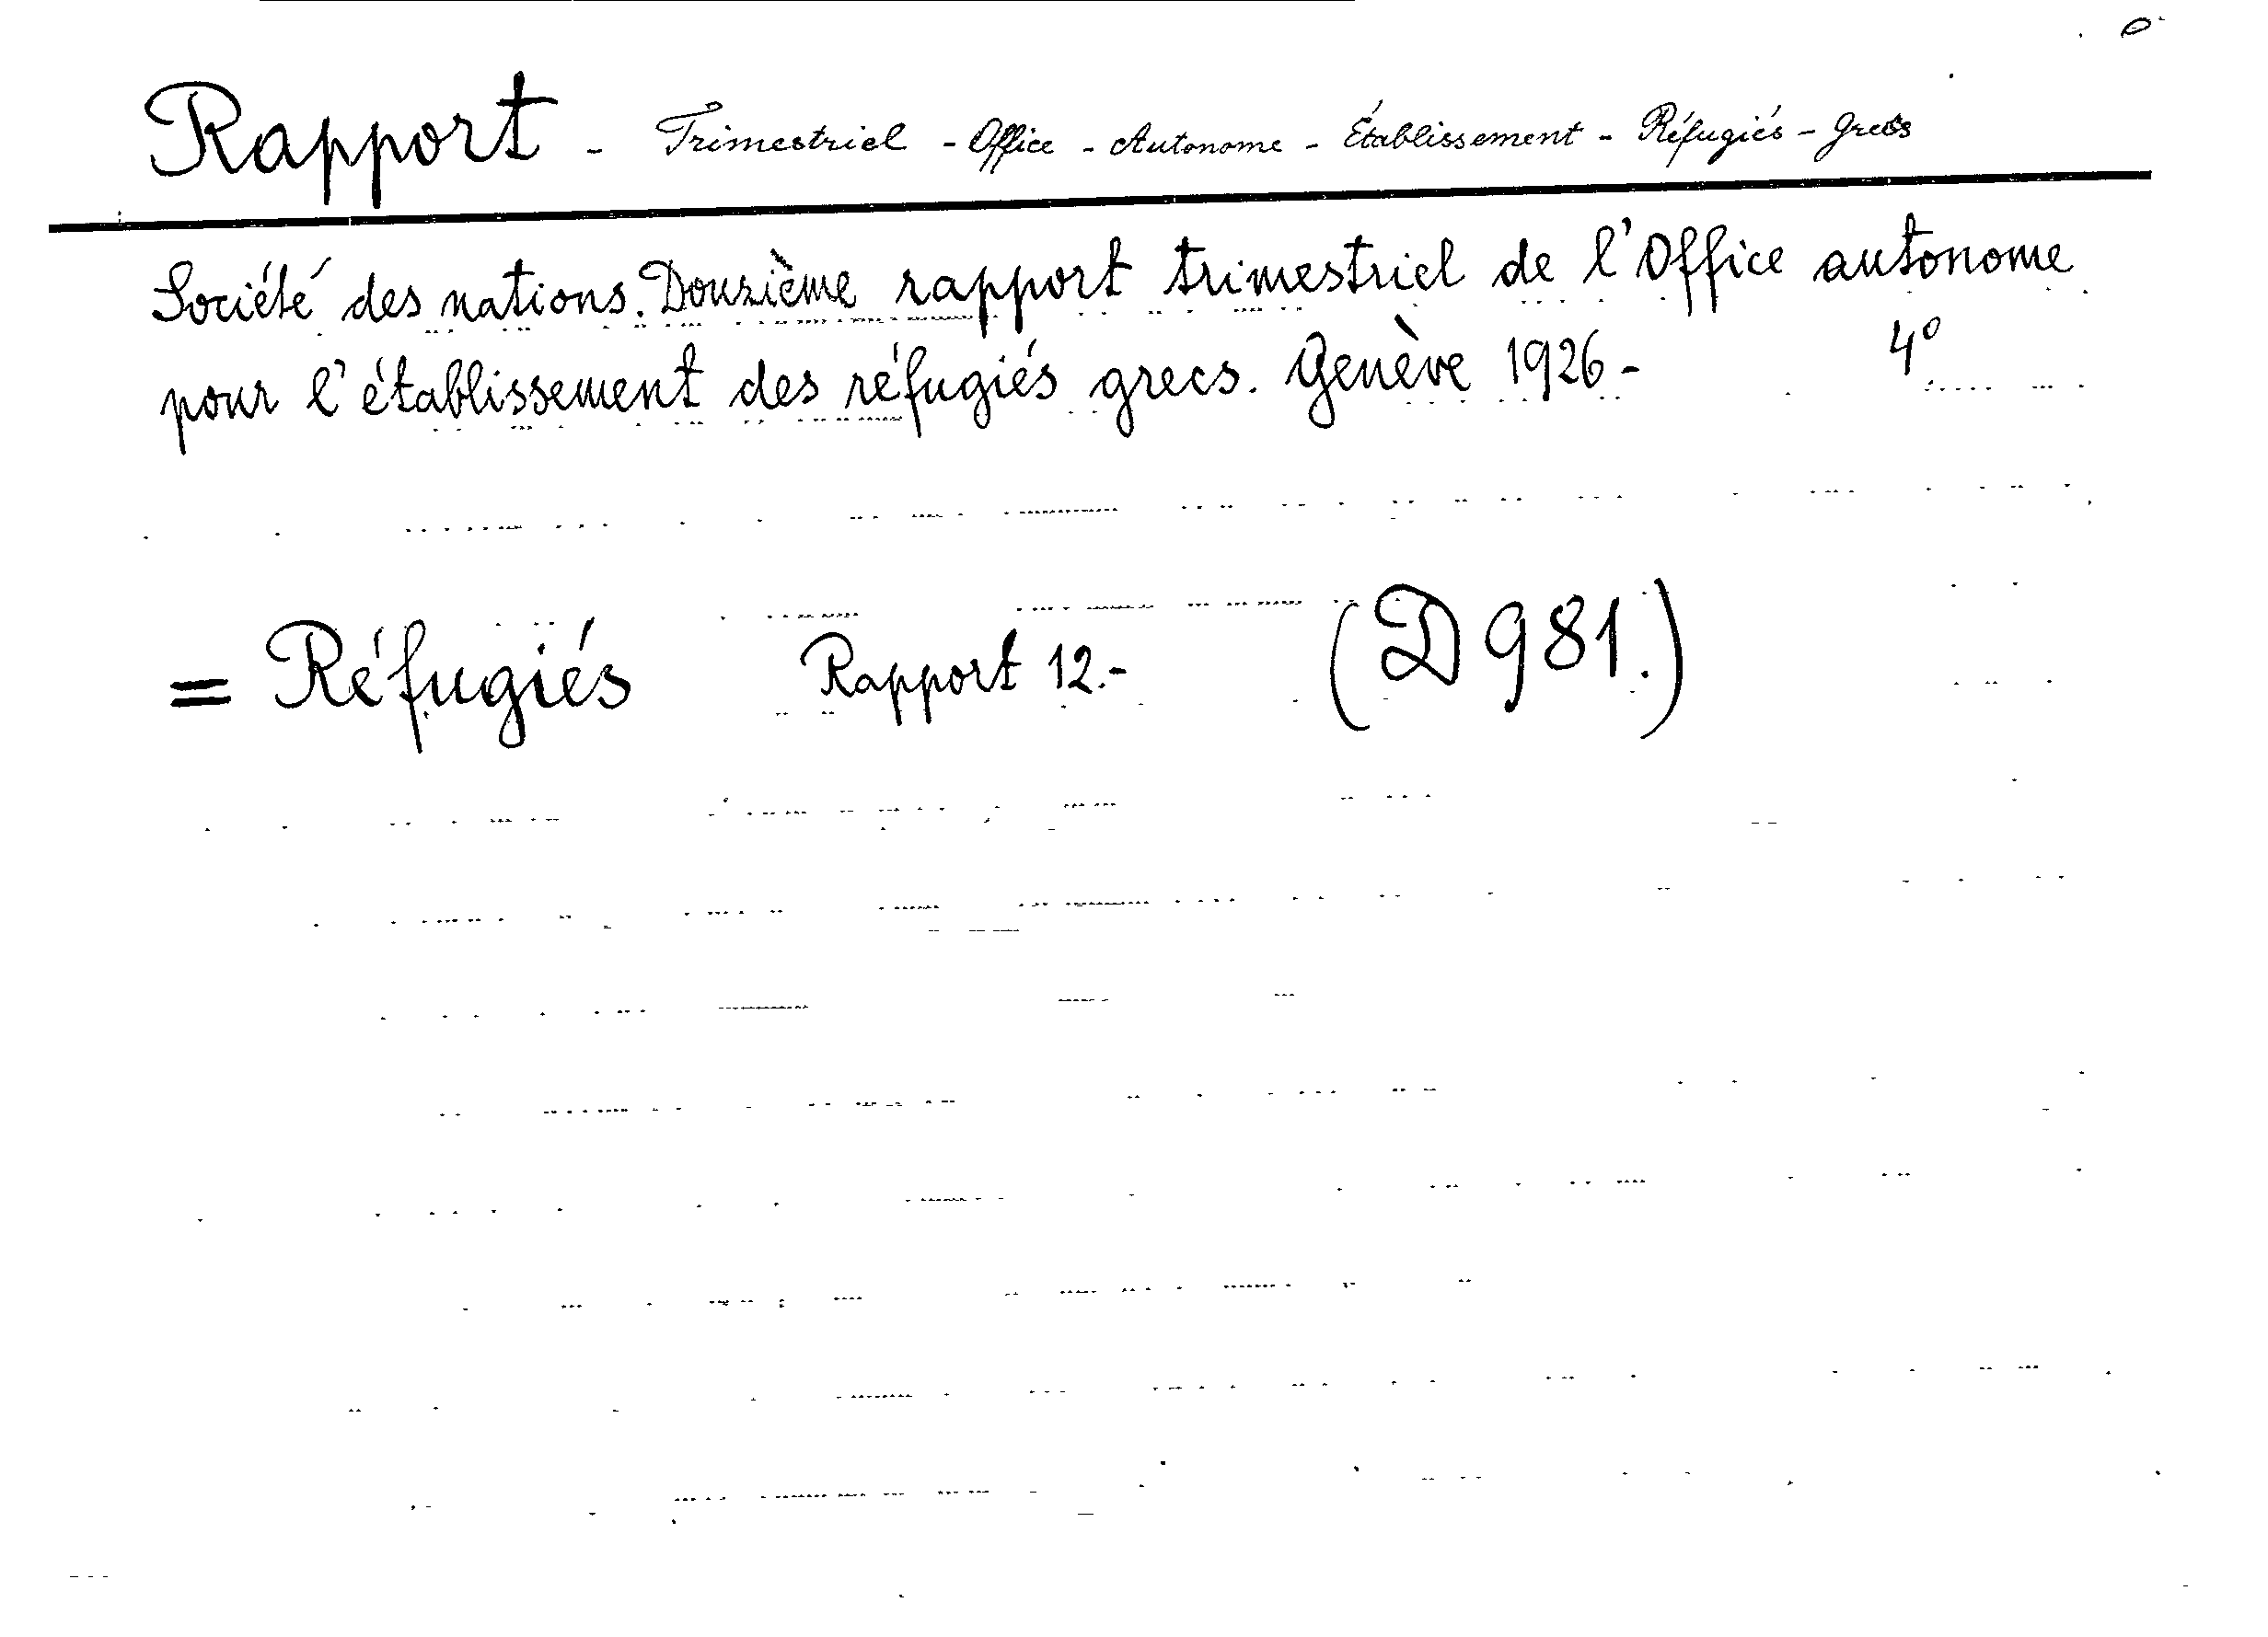 Rapport - Trimestriel - Office - Autonome - Établissement - Réfugiés - Grecs
Société des nations. Douzième rapport trimestriel de l'Office autonome
pour l'établissement des réfugiés grecs. Genève 1926 - 4°
= Réfugiés Rapport 12.- (D 981.)